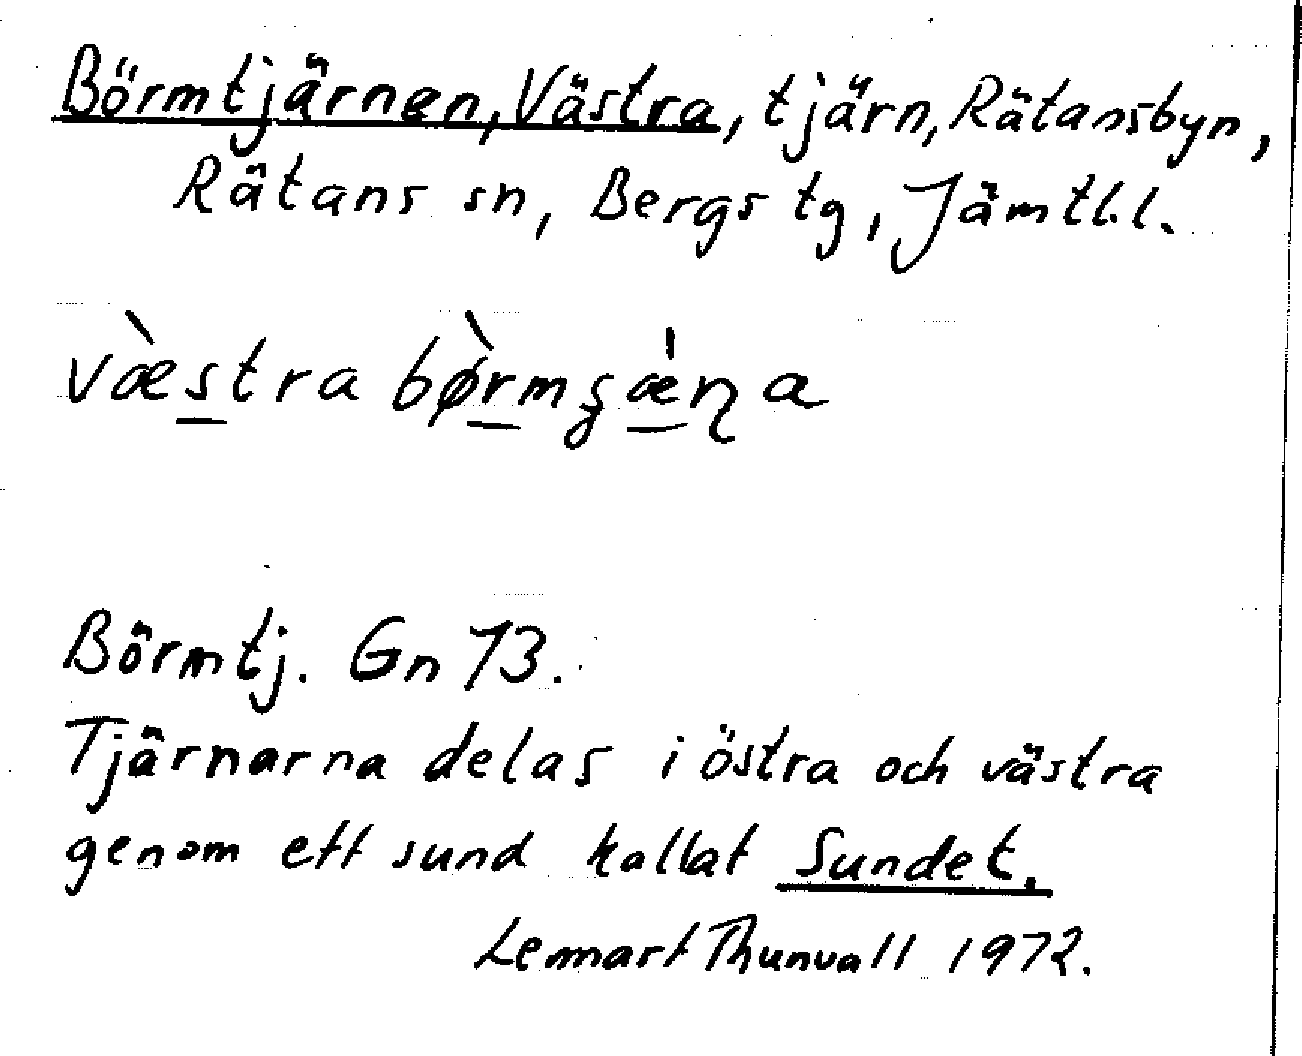 Börmtjärnen, Västra, tjärn, Rätansbyn,
Rätans sn, Bergs tg, Jämtl.l.
væ̀stra bø̀rmʂæ̍ɳa
Börmtj. Gn 73.
Tjärnarna delas i östra och västra
genom ett sund kallat Sundet.
Lennart Thunvall 1972.